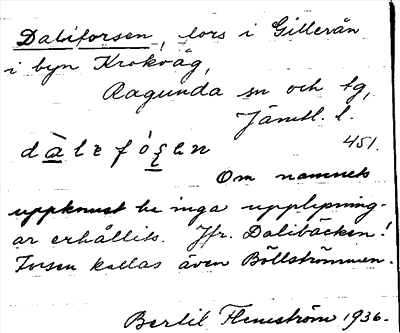 Daliforsen, fors i Gillerån
i byn Krokvåg,
Ragunda sn och tg,
Jämtl. l.
451.
Om namnets
uppkomst ha inga upplysning-
ar erhållits. Jfr. Dalibäcken!
Forsen kallas även Böllströmmen.
Bertil Flemström 1936.